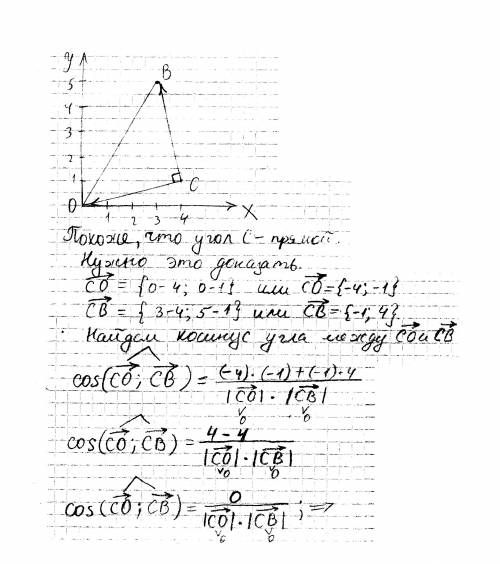 y
B
5
4
3
2
1
C
0 1 2 3 4 X
Похоже, что угол C – прямой.
Нужно это доказать.
CO = {0-4; 0-1} или CO = {-4; -1}
CB = {3-4; 5-1} или CB = {-1; 4}.
Найдем косинус угла между CO и CB
cos(CO; CB) = (-4)·(-1)+(-1)·4 / |CO|·|CB|
v0 v0
cos(CO; CB) = 4-4 / |CO|·|CB|
v0 v0
cos(CO; CB) = 0 / |CO|·|CB| ; =>
v0 v0